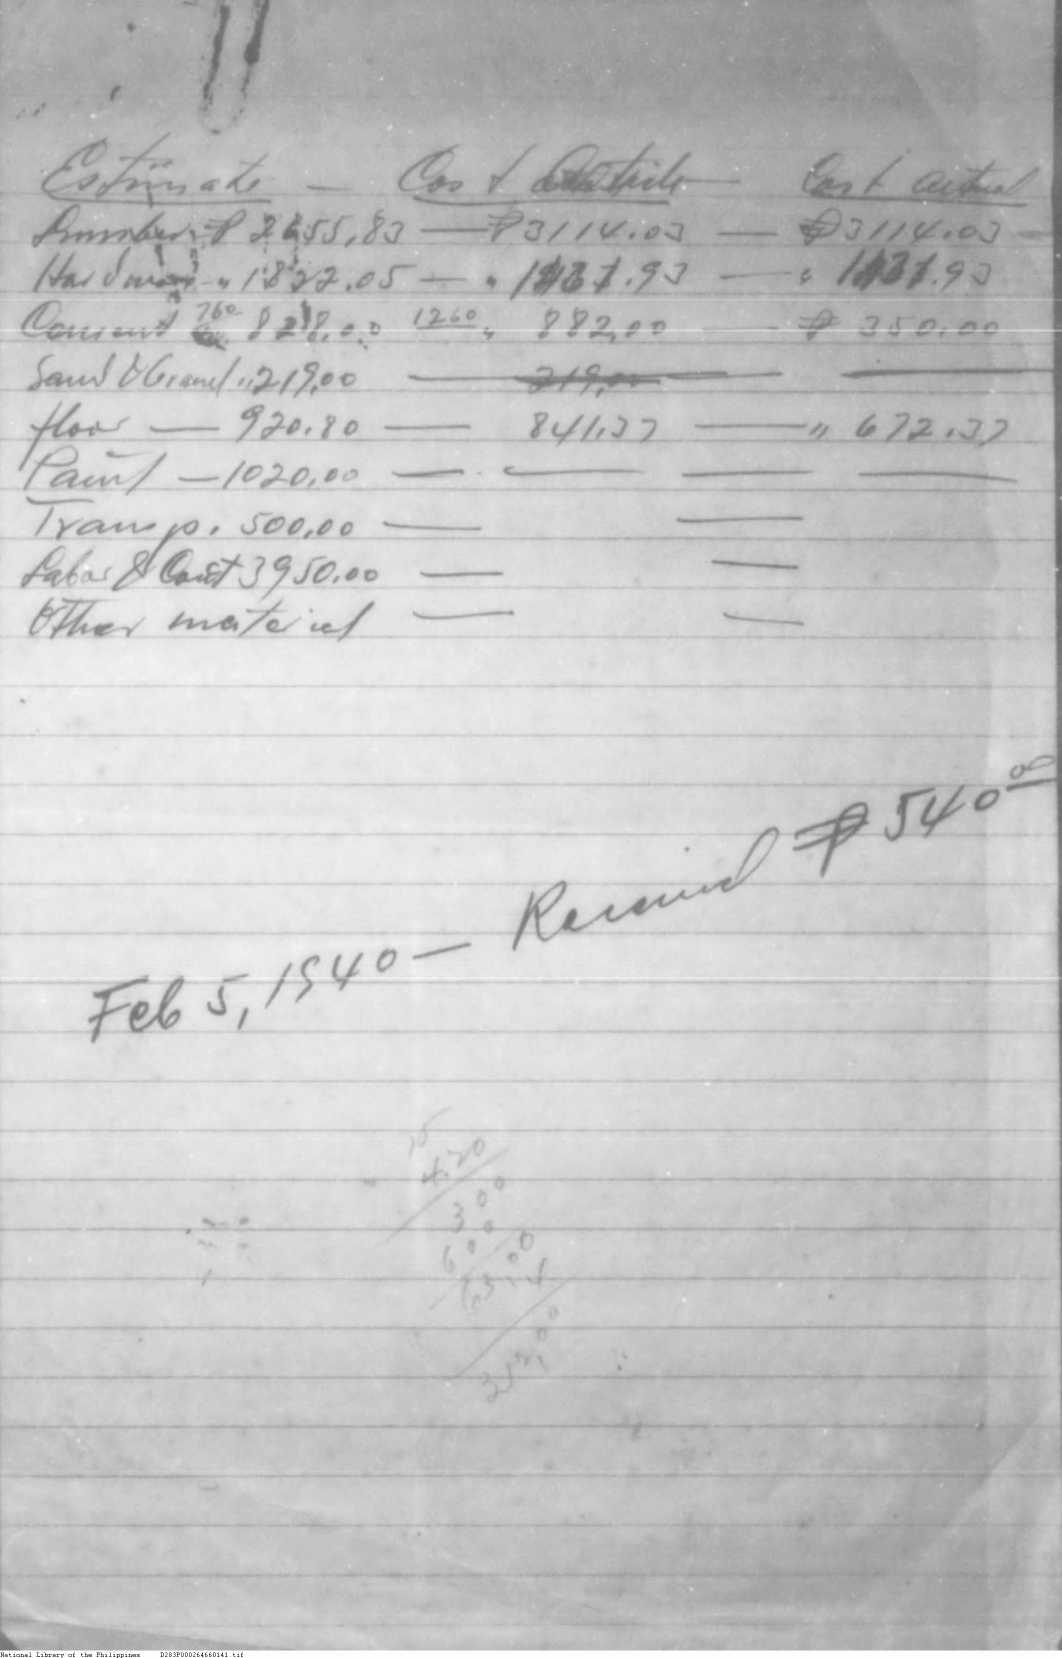 Estimate — Cost — Cost actual
Lumber ₱ 2655.83 — ₱ 3114.03 — ₱ 3114.03
Hardware " 1822.05 — " .93 — " .93
Cement 760 828.00 1260 " 882.00 — ₱ 350.00
Sand & Gravel " 219.00 — 219.00 —
floor — 920.80 — 841.37 — " 672.37
Paint — 1020.00 — — — —
Transp. 500.00 — —
Labor & Const 3950.00 — —
Other material — —
Feb 5, 1940 — Received ₱ 540.00
4.20
300
600
National Library of the Philippines D283P000264660141.tif